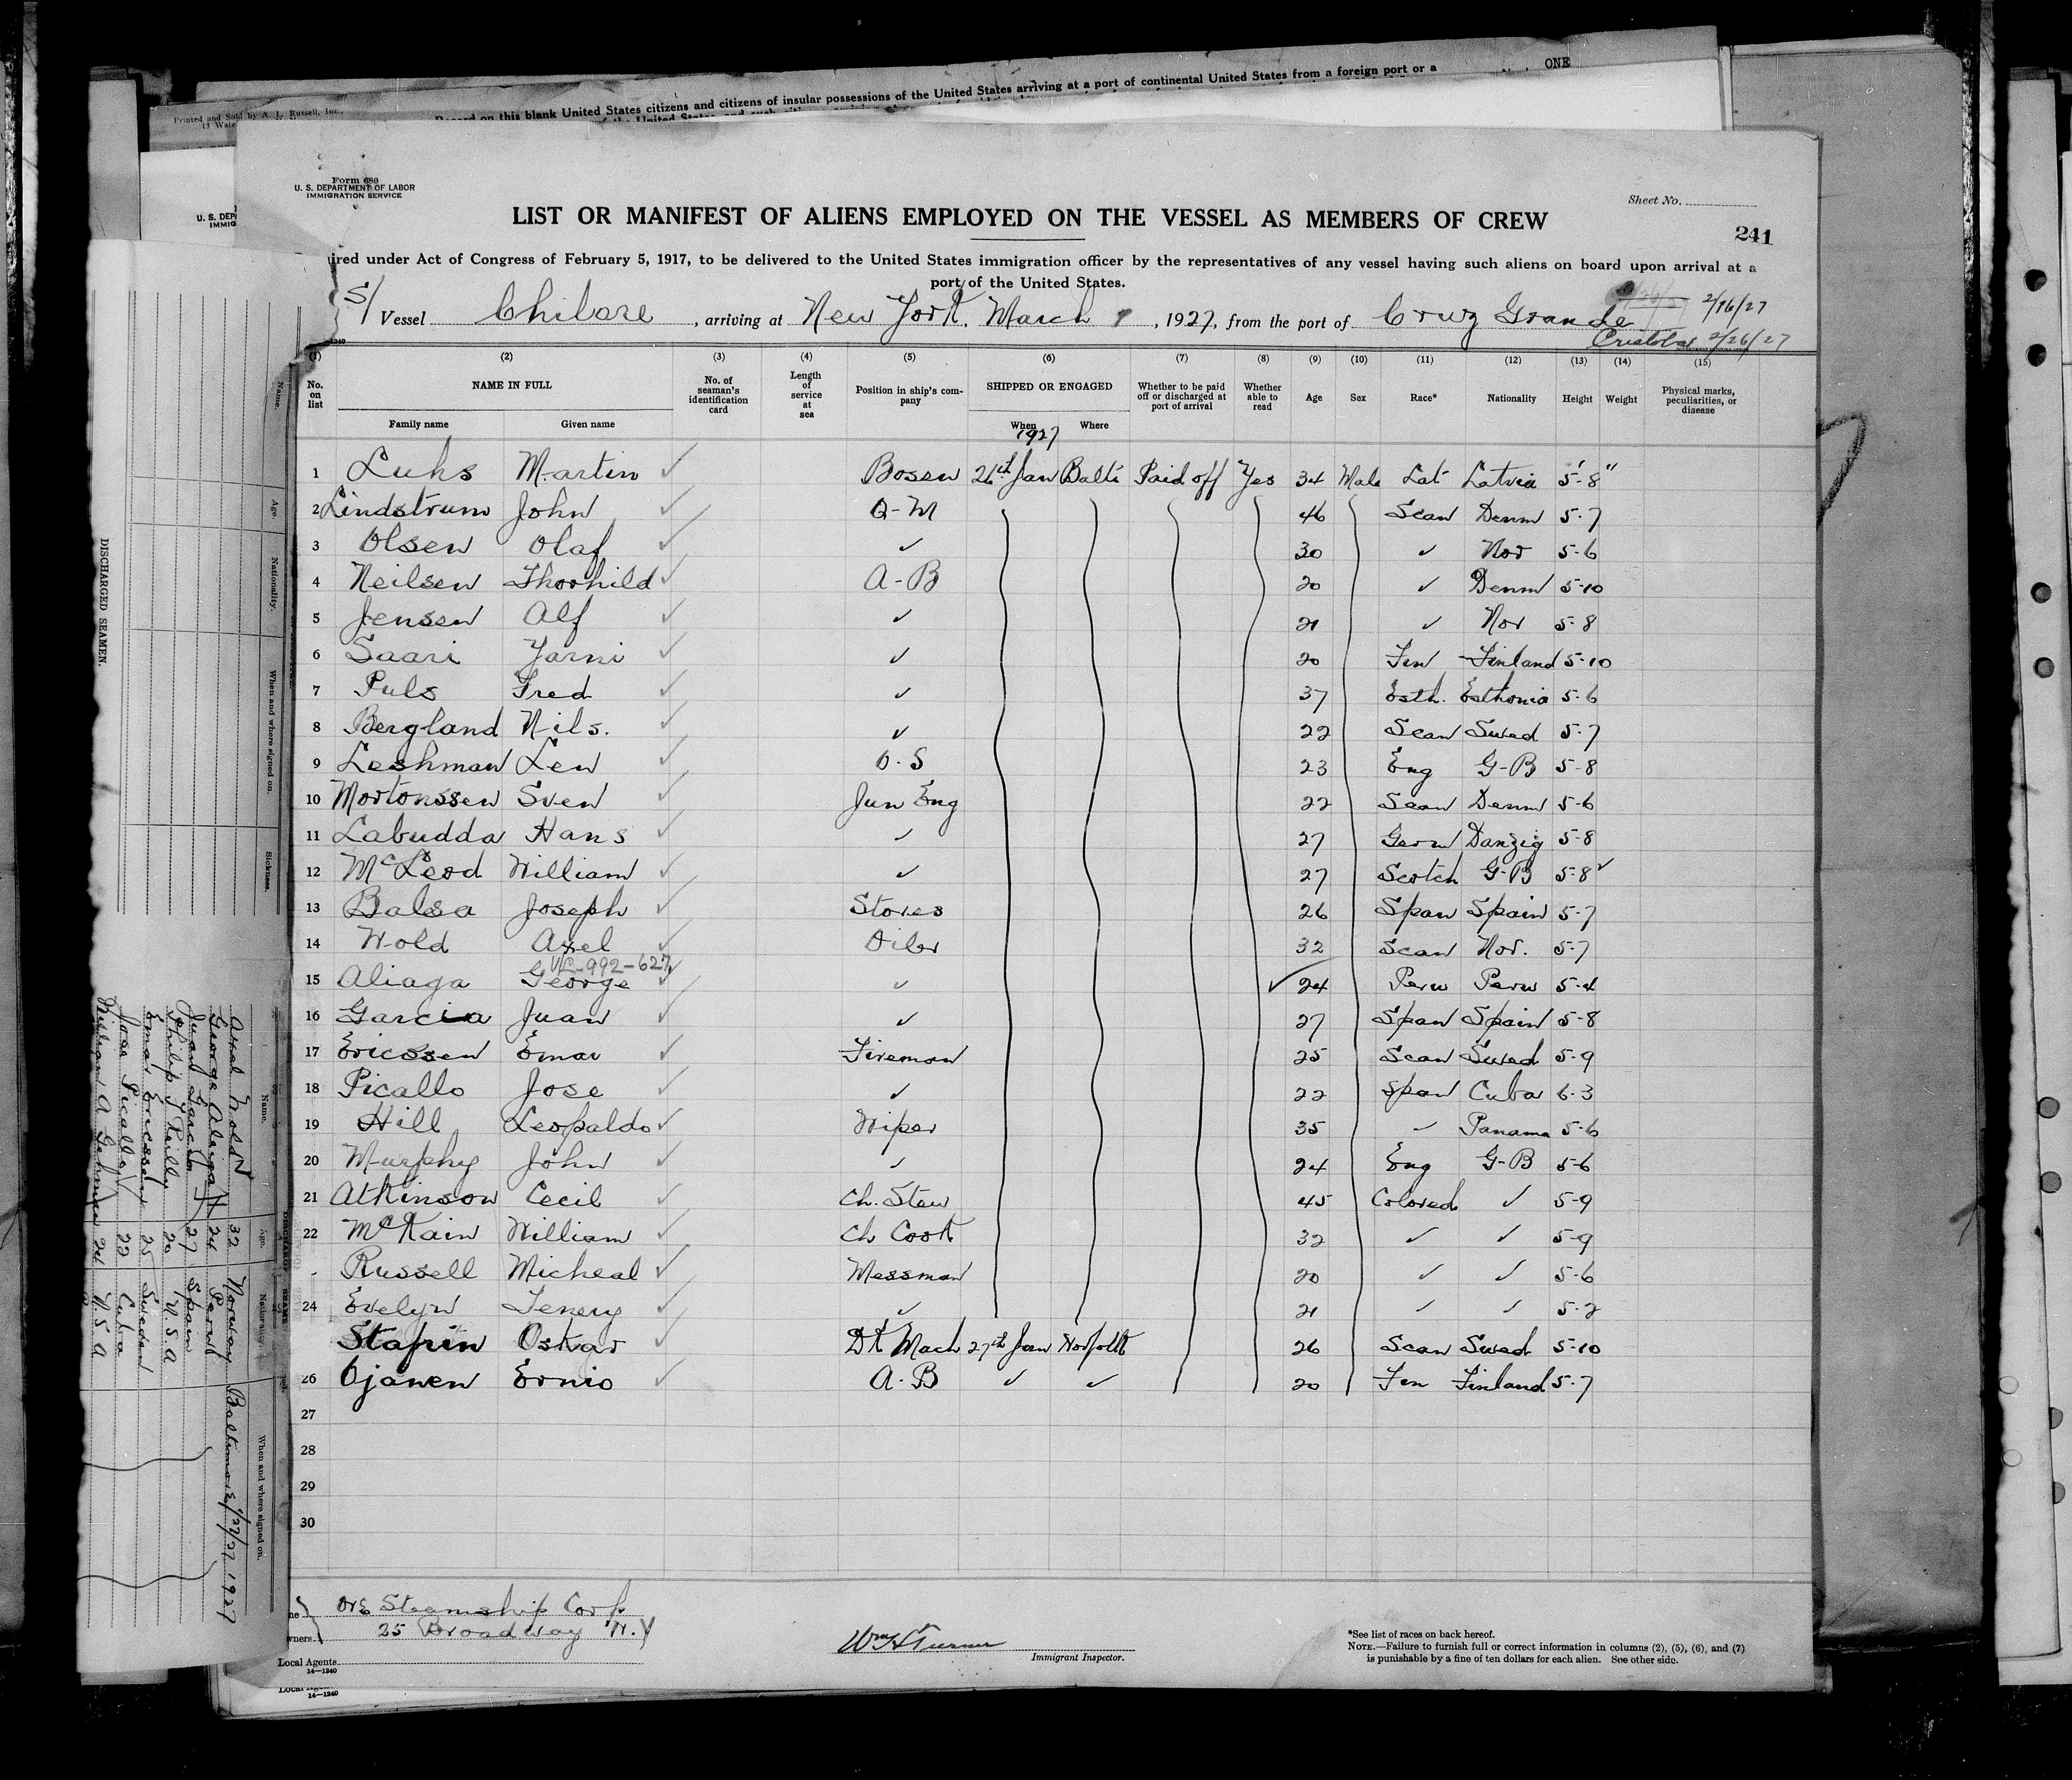 ONE
Record on this blank United States citizens and citizens of insular possessions of the United States arriving at a port of continental United States from a foreign port or a
Printed and Sold by A. L. Russell, Inc.,
Form 680
U. S. DEPARTMENT OF LABOR
IMMIGRATION SERVICE
Sheet No.
LIST OR MANIFEST OF ALIENS EMPLOYED ON THE VESSEL AS MEMBERS OF CREW
241
ired under Act of Congress of February 5, 1917, to be delivered to the United States immigration officer by the representatives of any vessel having such aliens on board upon arrival at a
port of the United States.
S/ Vessel Chilore, arriving at New York, March 8, 1927, from the port of Cruz Grande 2/16/27
Cristobal 2/26/27
(1) (2) (3) (4) (5) (6) (7) (8) (9) (10) (11) (12) (13) (14) (15)
No. on list NAME IN FULL Family name Given name No. of seaman's identification card Length of service at sea Position in ship's company SHIPPED OR ENGAGED When Where Whether to be paid off or discharged at port of arrival Whether able to read Age Sex Race* Nationality Height Weight Physical marks, peculiarities, or disease
1927
1 Luhs Martin ✓ Bosen 26th Jan Balti Paid off Yes 34 Male Lat Latvia 5'-8"
2 Lindstrum John ✓ Q-M 46 Scan Denm 5-7
3 Olsen Olaf ✓ ✓ 30 ✓ Nor 5-6
4 Neilsen Thorhild ✓ A-B 20 ✓ Denm 5-10
5 Jensen Alf ✓ ✓ 21 ✓ Nor 5-8
6 Saari Yarni ✓ ✓ 20 Fin Finland 5-10
7 Puls Fred ✓ ✓ 37 Esth. Esthonia 5-6
8 Bergland Nils. ✓ ✓ 22 Scan Swed 5-7
9 Leshman Len ✓ O.S 23 Eng G-B 5-8
10 Mortonssen Sven ✓ Jun Eng 22 Scan Denm 5-6
11 Labudda Hans ✓ ✓ 27 Germ Danzig 5-8
12 McLeod William ✓ ✓ 27 Scotch G-B 5-8 ✓
13 Balsa Joseph ✓ Stores 26 Span Spain 5-7
14 Wold Axel ✓ Oiler 32 Scan Nor. 5-7
VL-992-627
15 Aliaga George ✓ ✓ ✓ 24 Peru Peru 5-4
16 Garcia Juan ✓ ✓ 27 Span Spain 5-8
17 Ericssen Emar ✓ Fireman 25 Scan Swed 5-9
18 Picallo Jose ✓ ✓ 22 Span Cuba 6-3
19 Hill Leopaldo ✓ Wiper 35 ✓ Panama 5-6
20 Murphy John ✓ ✓ 24 Eng G-B 5-6
21 Atkinson Cecil ✓ Ch. Stew 45 Colored ✓ 5-9
22 McKain William ✓ Ch Cook 32 ✓ ✓ 5-9
Russell Micheal ✓ Messman 20 ✓ ✓ 5-6
24 Evelyn Tenery ✓ ✓ 21 ✓ ✓ 5-2
Stafrin Oskar ✓ Dk Mach 27th Jan Norfolk 26 Scan Swed 5-10
26 Ojanen Ernio ✓ A-B ✓ ✓ 20 Fin Finland 5-7
27
28
29
30
Ore Steamship Corp.
25 Broadway N.Y
wners.
Local Agents
14—1240
Wm H Turner
Immigrant Inspector.
*See list of races on back hereof.
NOTE.—Failure to furnish full or correct information in columns (2), (5), (6), and (7)
is punishable by a fine of ten dollars for each alien. See other side.
14—1240
DISCHARGED SEAMEN.
Name. Age. Nationality. When and where signed on. Sickness.
Name. Age. Nationality. When and where signed on.
Axel Wold 32 Norway Baltimore 1/27/27 1927
George Aleiga 24 Peru
Juan Garcia 27 Spain
Philip J Reilly 20 U.S.A
Emar Ericssen 25 Sweden
Jose Picallo 22 Cuba
William A 24 U.S.A